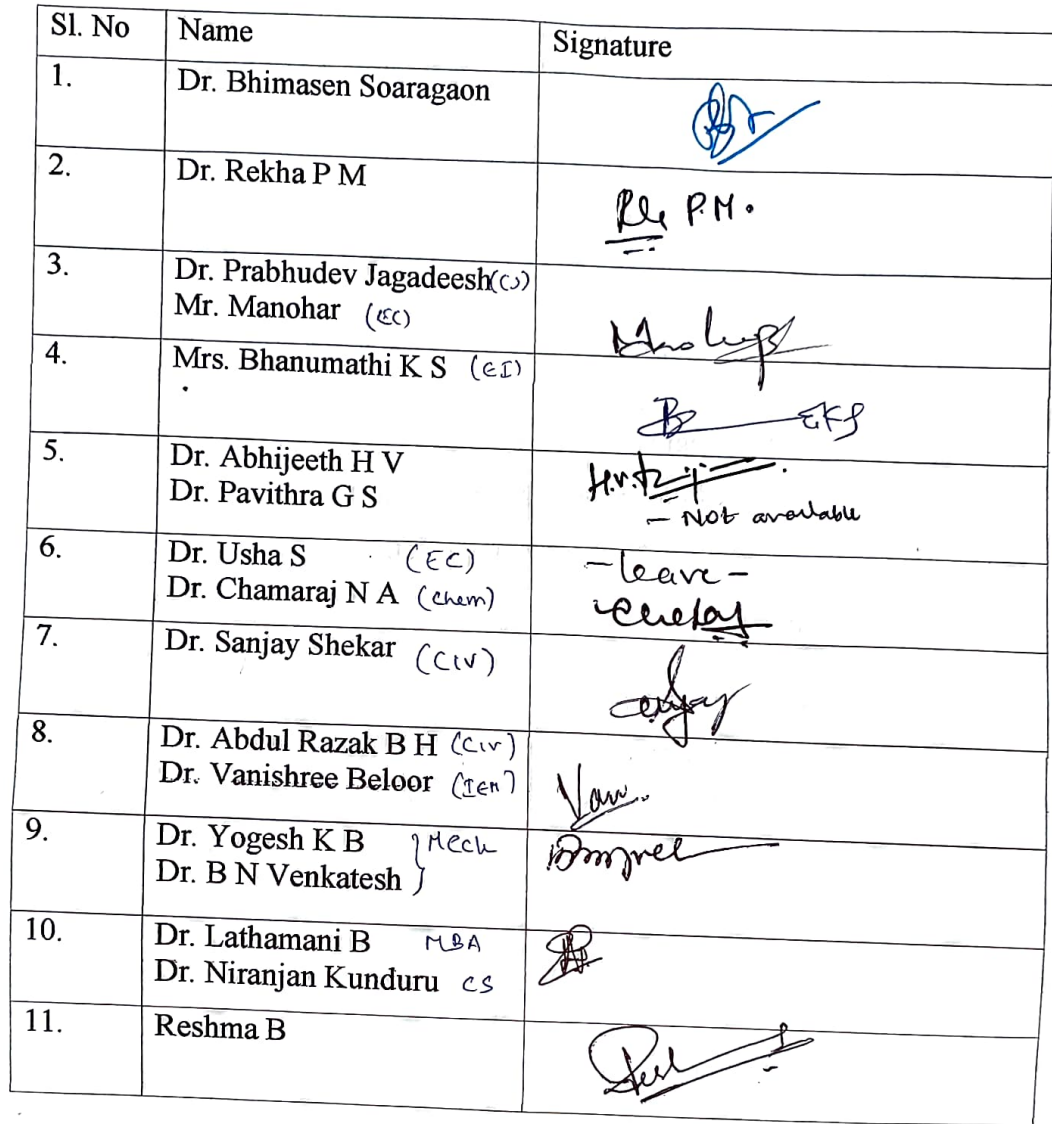 Sl. No Name Signature
1. Dr. Bhimasen Soaragaon
2. Dr. Rekha P M
P.M.
3. Dr. Prabhudev Jagadeesh
Mr. Manohar (EC)
4. Mrs. Bhanumathi K S (EI)
5. Dr. Abhijeeth H V
Dr. Pavithra G S - Not available
6. Dr. Usha S (EC) - leave -
Dr. Chamaraj N A (Chem)
7. Dr. Sanjay Shekar (CIV)
8. Dr. Abdul Razak B H (Civ)
Dr. Vanishree Beloor (IEM)
9. Dr. Yogesh K B } Mech
Dr. B N Venkatesh
10. Dr. Lathamani B MBA
Dr. Niranjan Kunduru CS
11. Reshma B